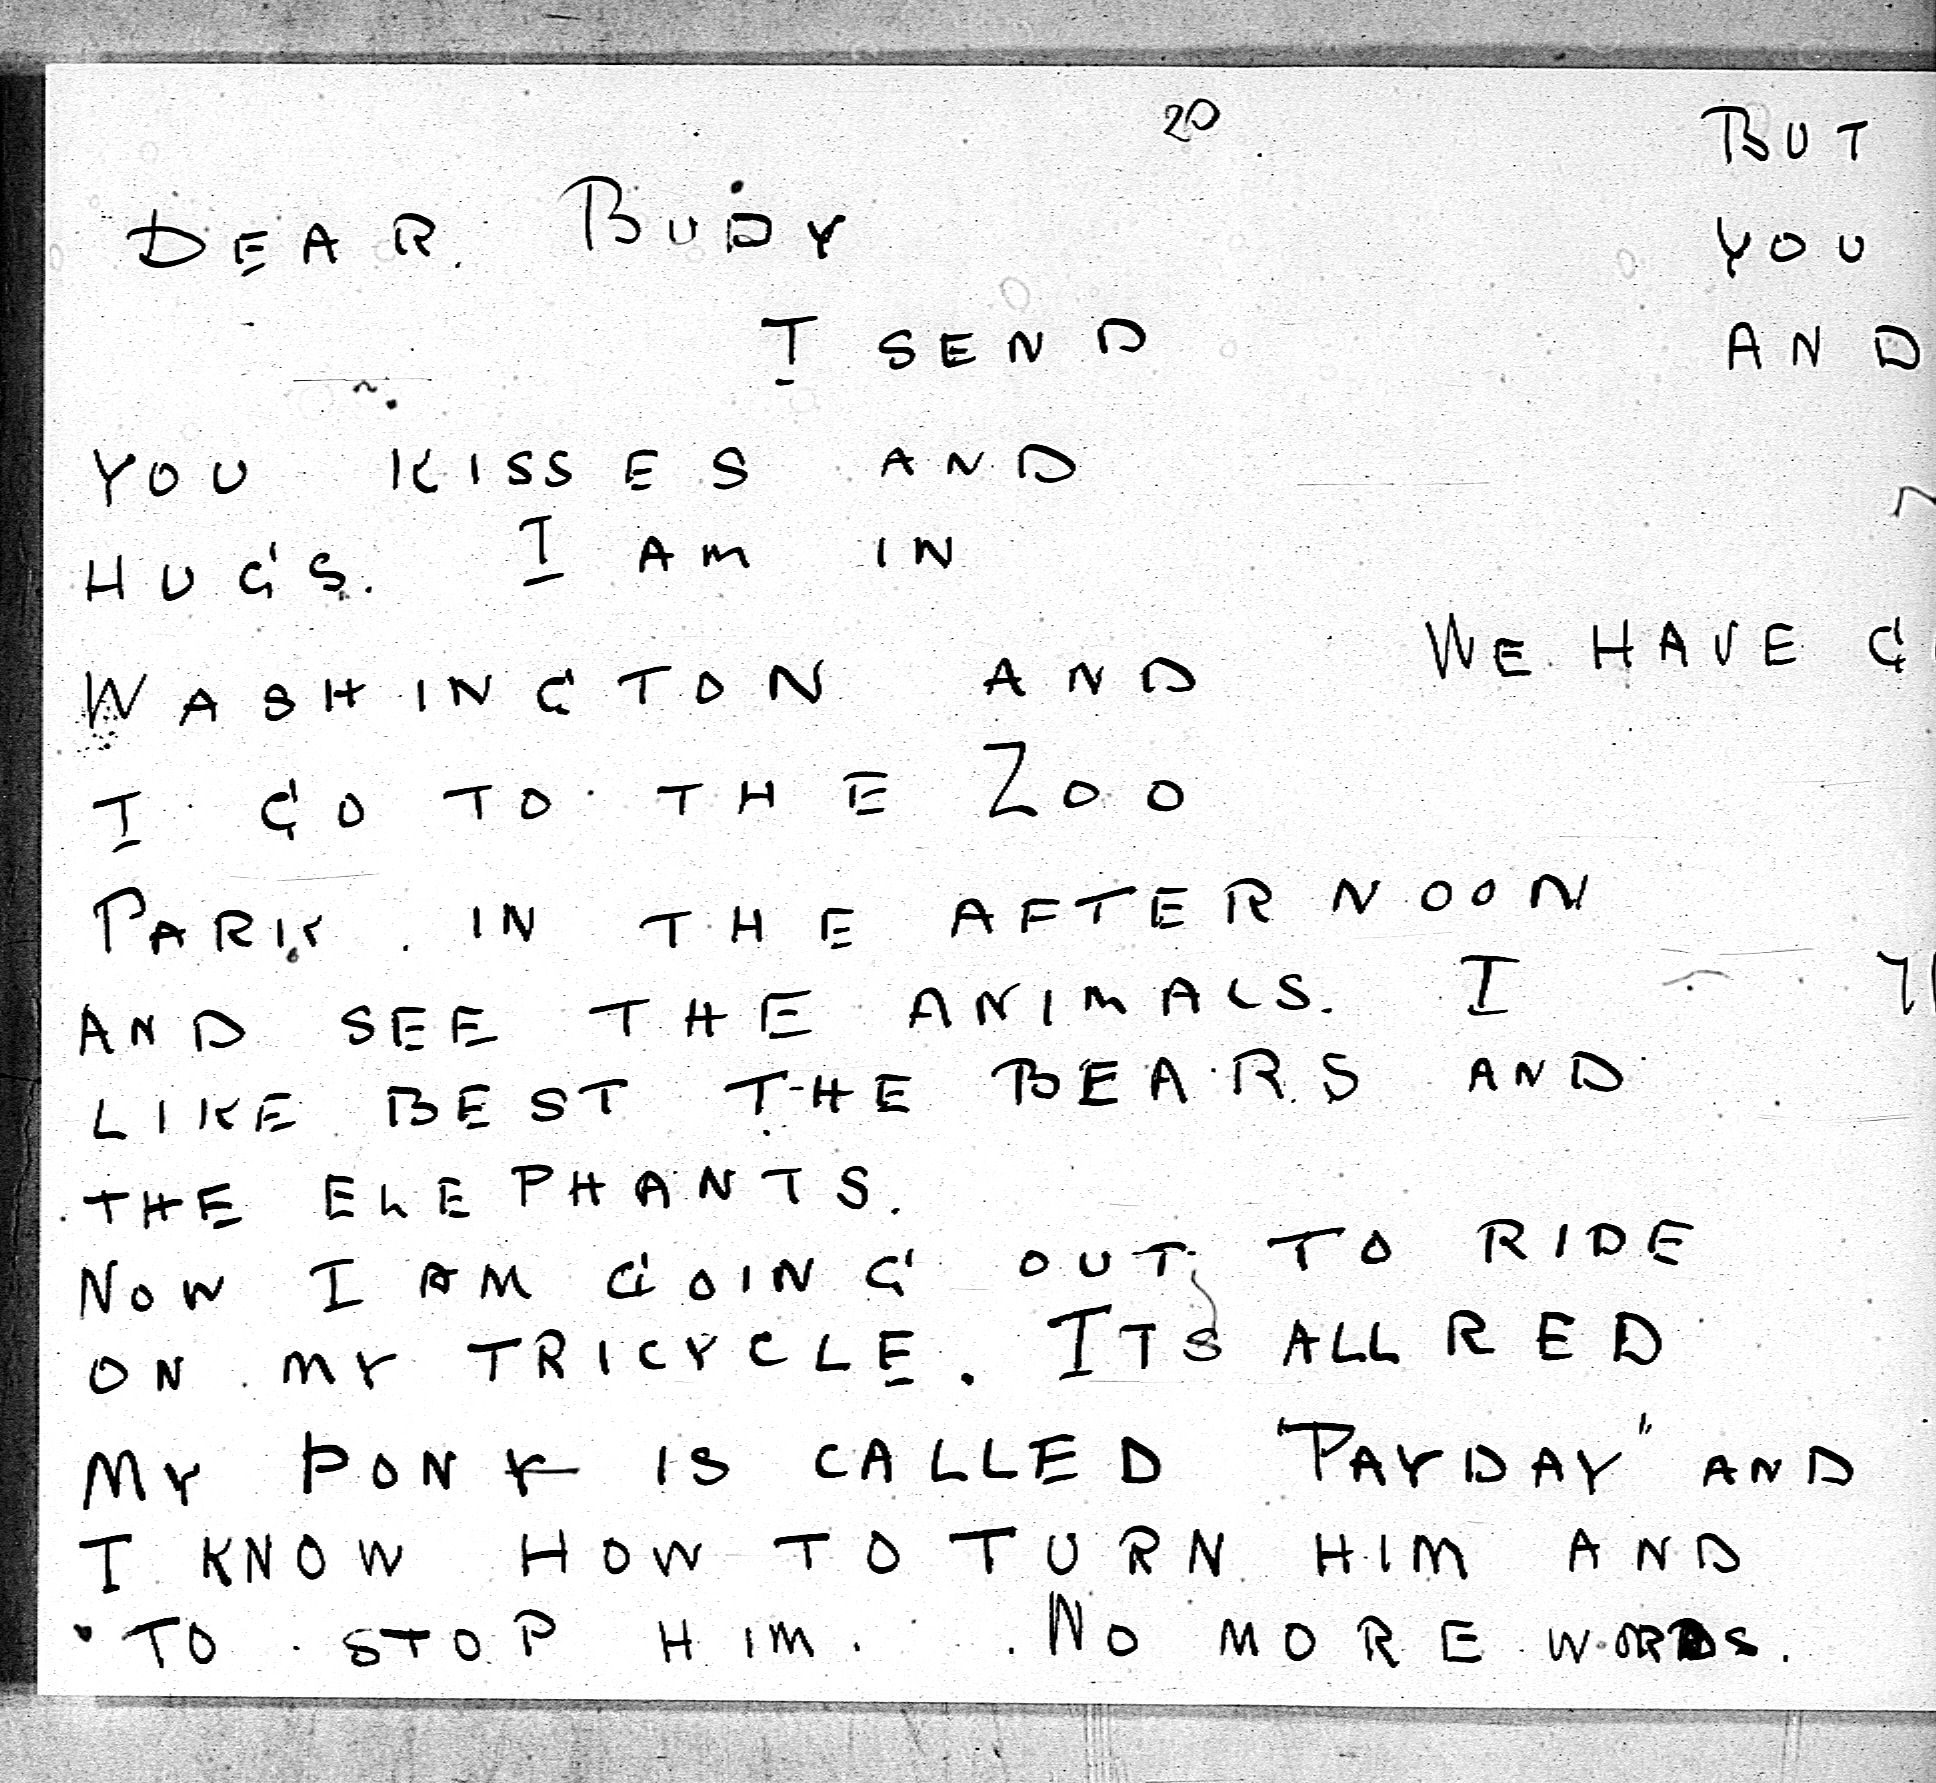 20
DEAR BUDY
I SEND
YOU KISSES AND
HUGS. I AM IN
WASHINGTON AND
I GO TO THE ZOO
PARK IN THE AFTERNOON
AND SEE THE ANIMALS. I
LIKE BEST THE BEARS AND
THE ELEPHANTS.
NOW I AM GOING OUT TO RIDE
ON MY TRICYCLE. ITS ALL RED
MY PONY IS CALLED "PAYDAY" AND
I KNOW HOW TO TURN HIM AND
TO STOP HIM. NO MORE WORDS.
BUT
YOU
AND
WE HAVE